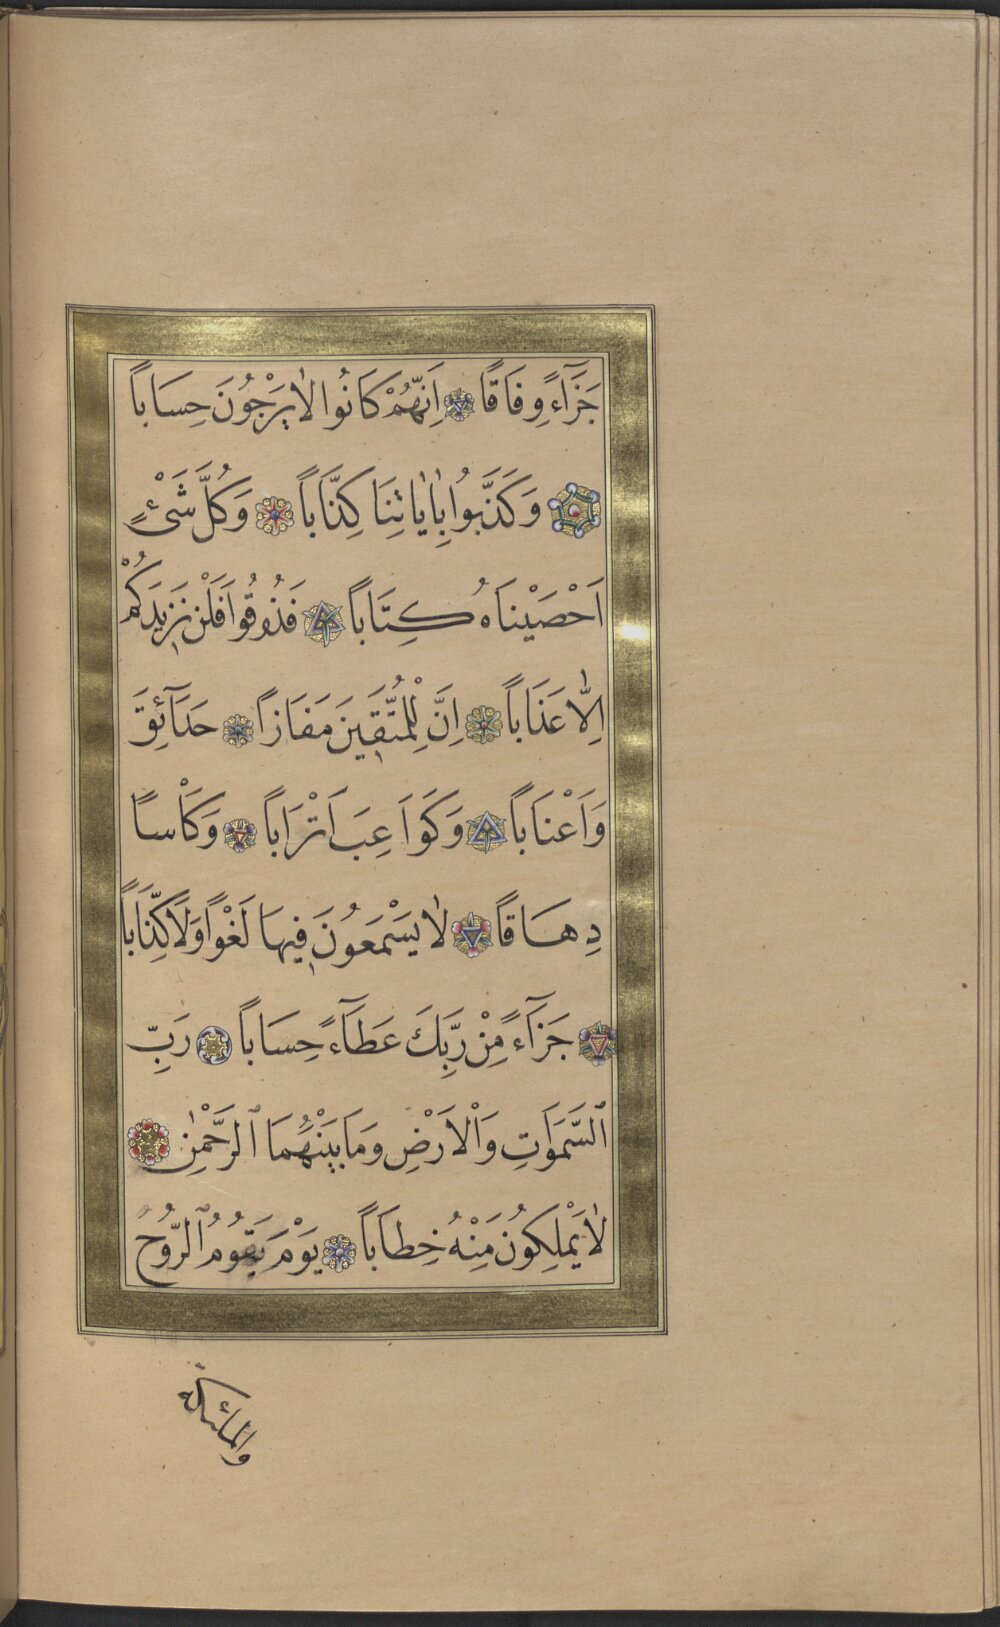 جَزَآءً وِفَاقًا اَنَّهُمْ كَانُوا لَا يَرْجُونَ حِسَاباً
وَكَذَّبُوا بِاٰيَاتِنَا كِذَّاباً وَكُلَّ شَىْءٍ
اَحْصَيْنَاهُ كِتَاباً فَذُوقُوا فَلَنْ نَزِيدَكُمْ
اِلَّا عَذَاباً اِنَّ لِلْمُتَّقِينَ مَفَازاً حَدَآئِقَ
وَاَعْنَاباً وَكَوَاعِبَ اَتْرَاباً وَكَأْساً
دِهَاقًا لَا يَسْمَعُونَ فِيهَا لَغْوًا وَلَا كِذَّاباً
جَزَآءً مِنْ رَبِّكَ عَطَآءً حِسَاباً رَبِّ
ٱلسَّمَوَاتِ وَالْاَرْضِ وَمَا بَيْنَهُمَا ٱلرَّحْمٰنِ
لَا يَمْلِكُونَ مِنْهُ خِطَاباً يَوْمَ يَقُومُ ٱلرُّوحُ
والملئكة